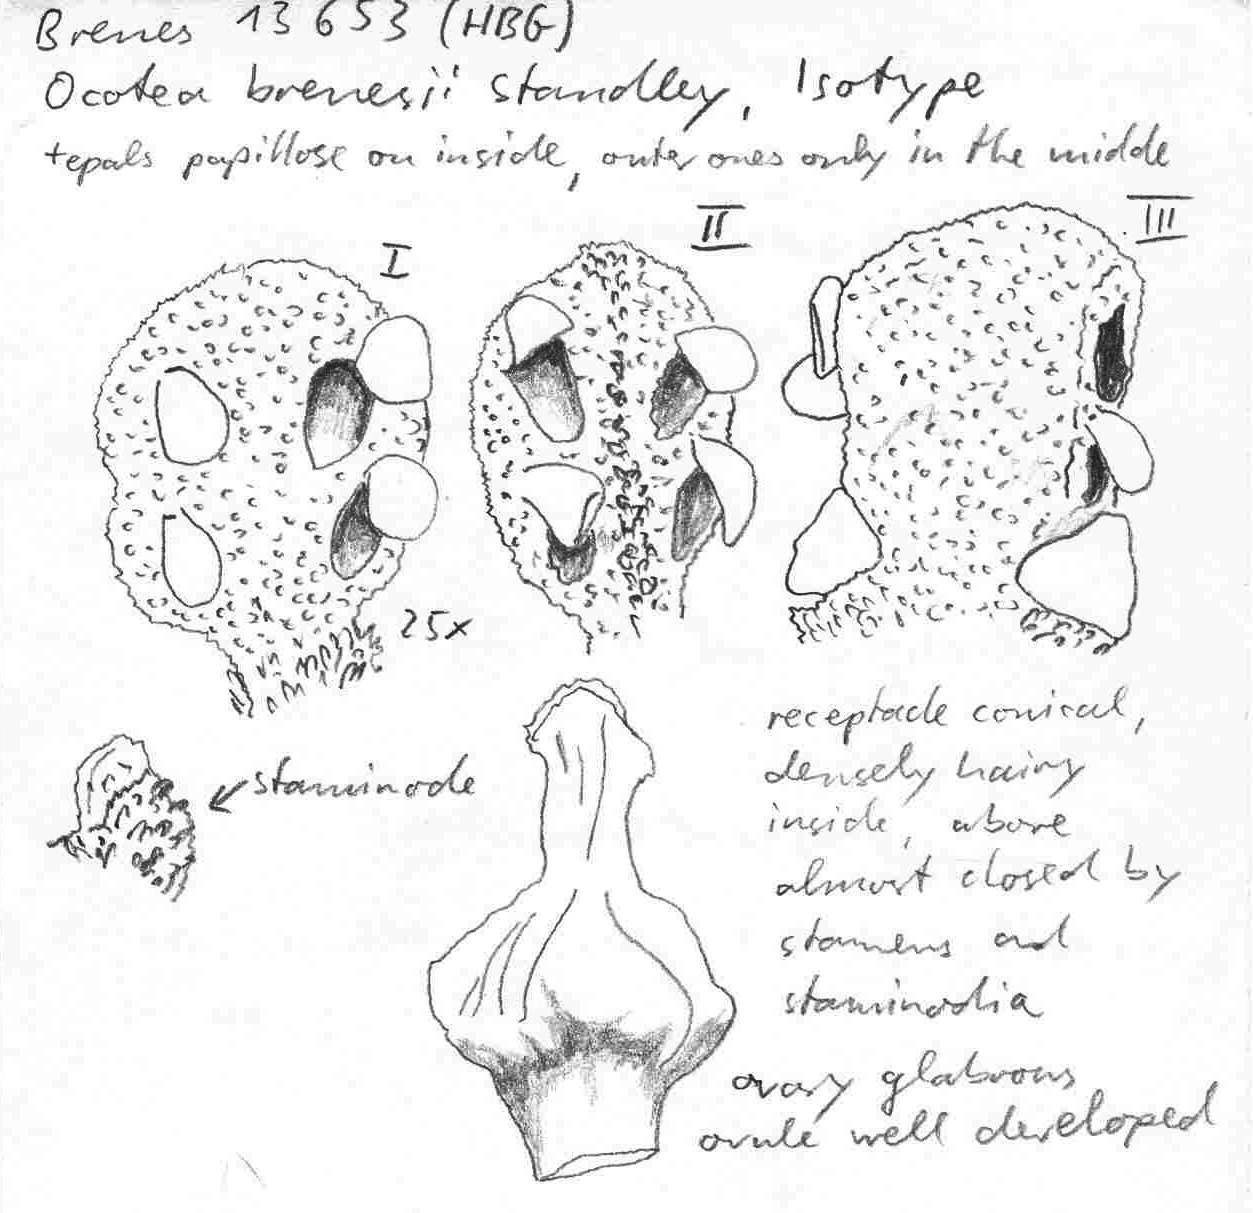 Brenes 13653 (HBG)
Ocotea brenesii Standley, Isotype
tepals papillose on inside, outer ones only in the midde
I
II
III
25x
staminode
receptacle conical,
densely hairy
inside, above
almost closed by
stamens and
staminodia
ovary glabrous
ovule well developed